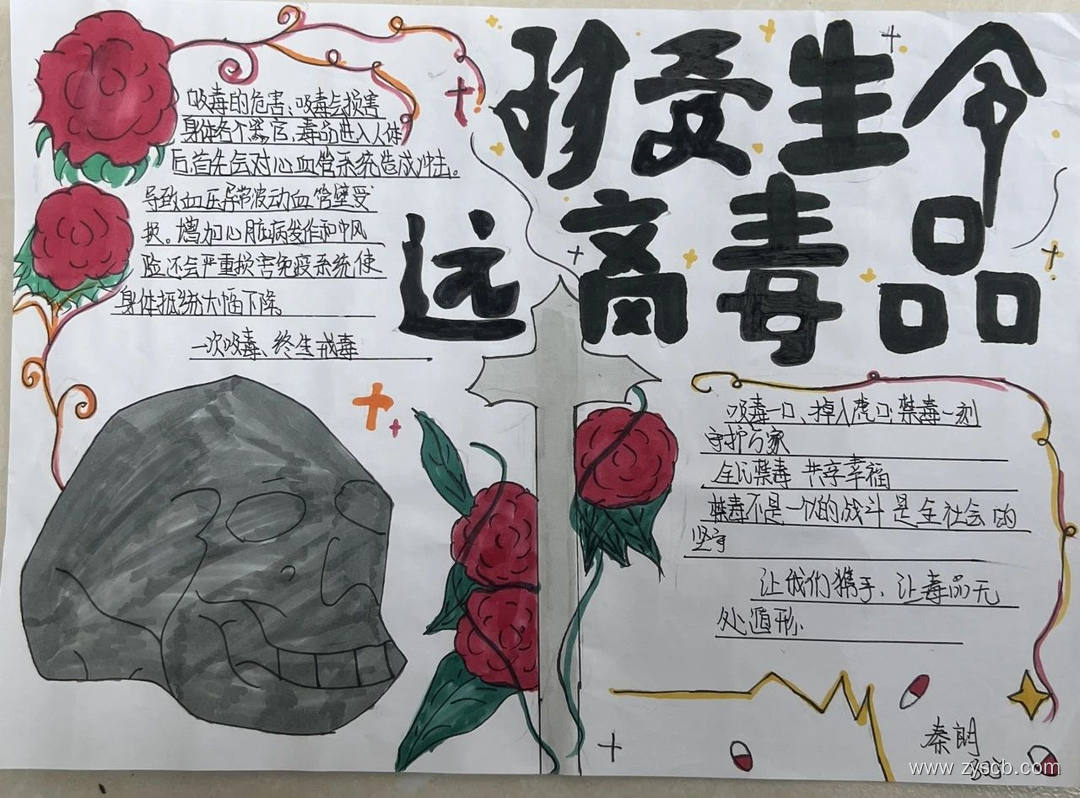 珍爱生命
远离毒品
吸毒的危害、吸毒会损害
身体各个器官,毒品进入人体
后,首先会对心血管系统造成冲击。
导致血压异常波动血管壁受
损。增加心脏病发作和中风
险,还会严重损害免疫系统,使
身体抵御大幅下降
一次吸毒、终生戒毒
吸毒一口、掉入虎口;禁毒一刻
守护万家
全民禁毒 共享幸福
禁毒不是一次的战斗是全社会的
坚守
让我们携手、让毒品无
处遁形、
秦朗
www.zyscb.com